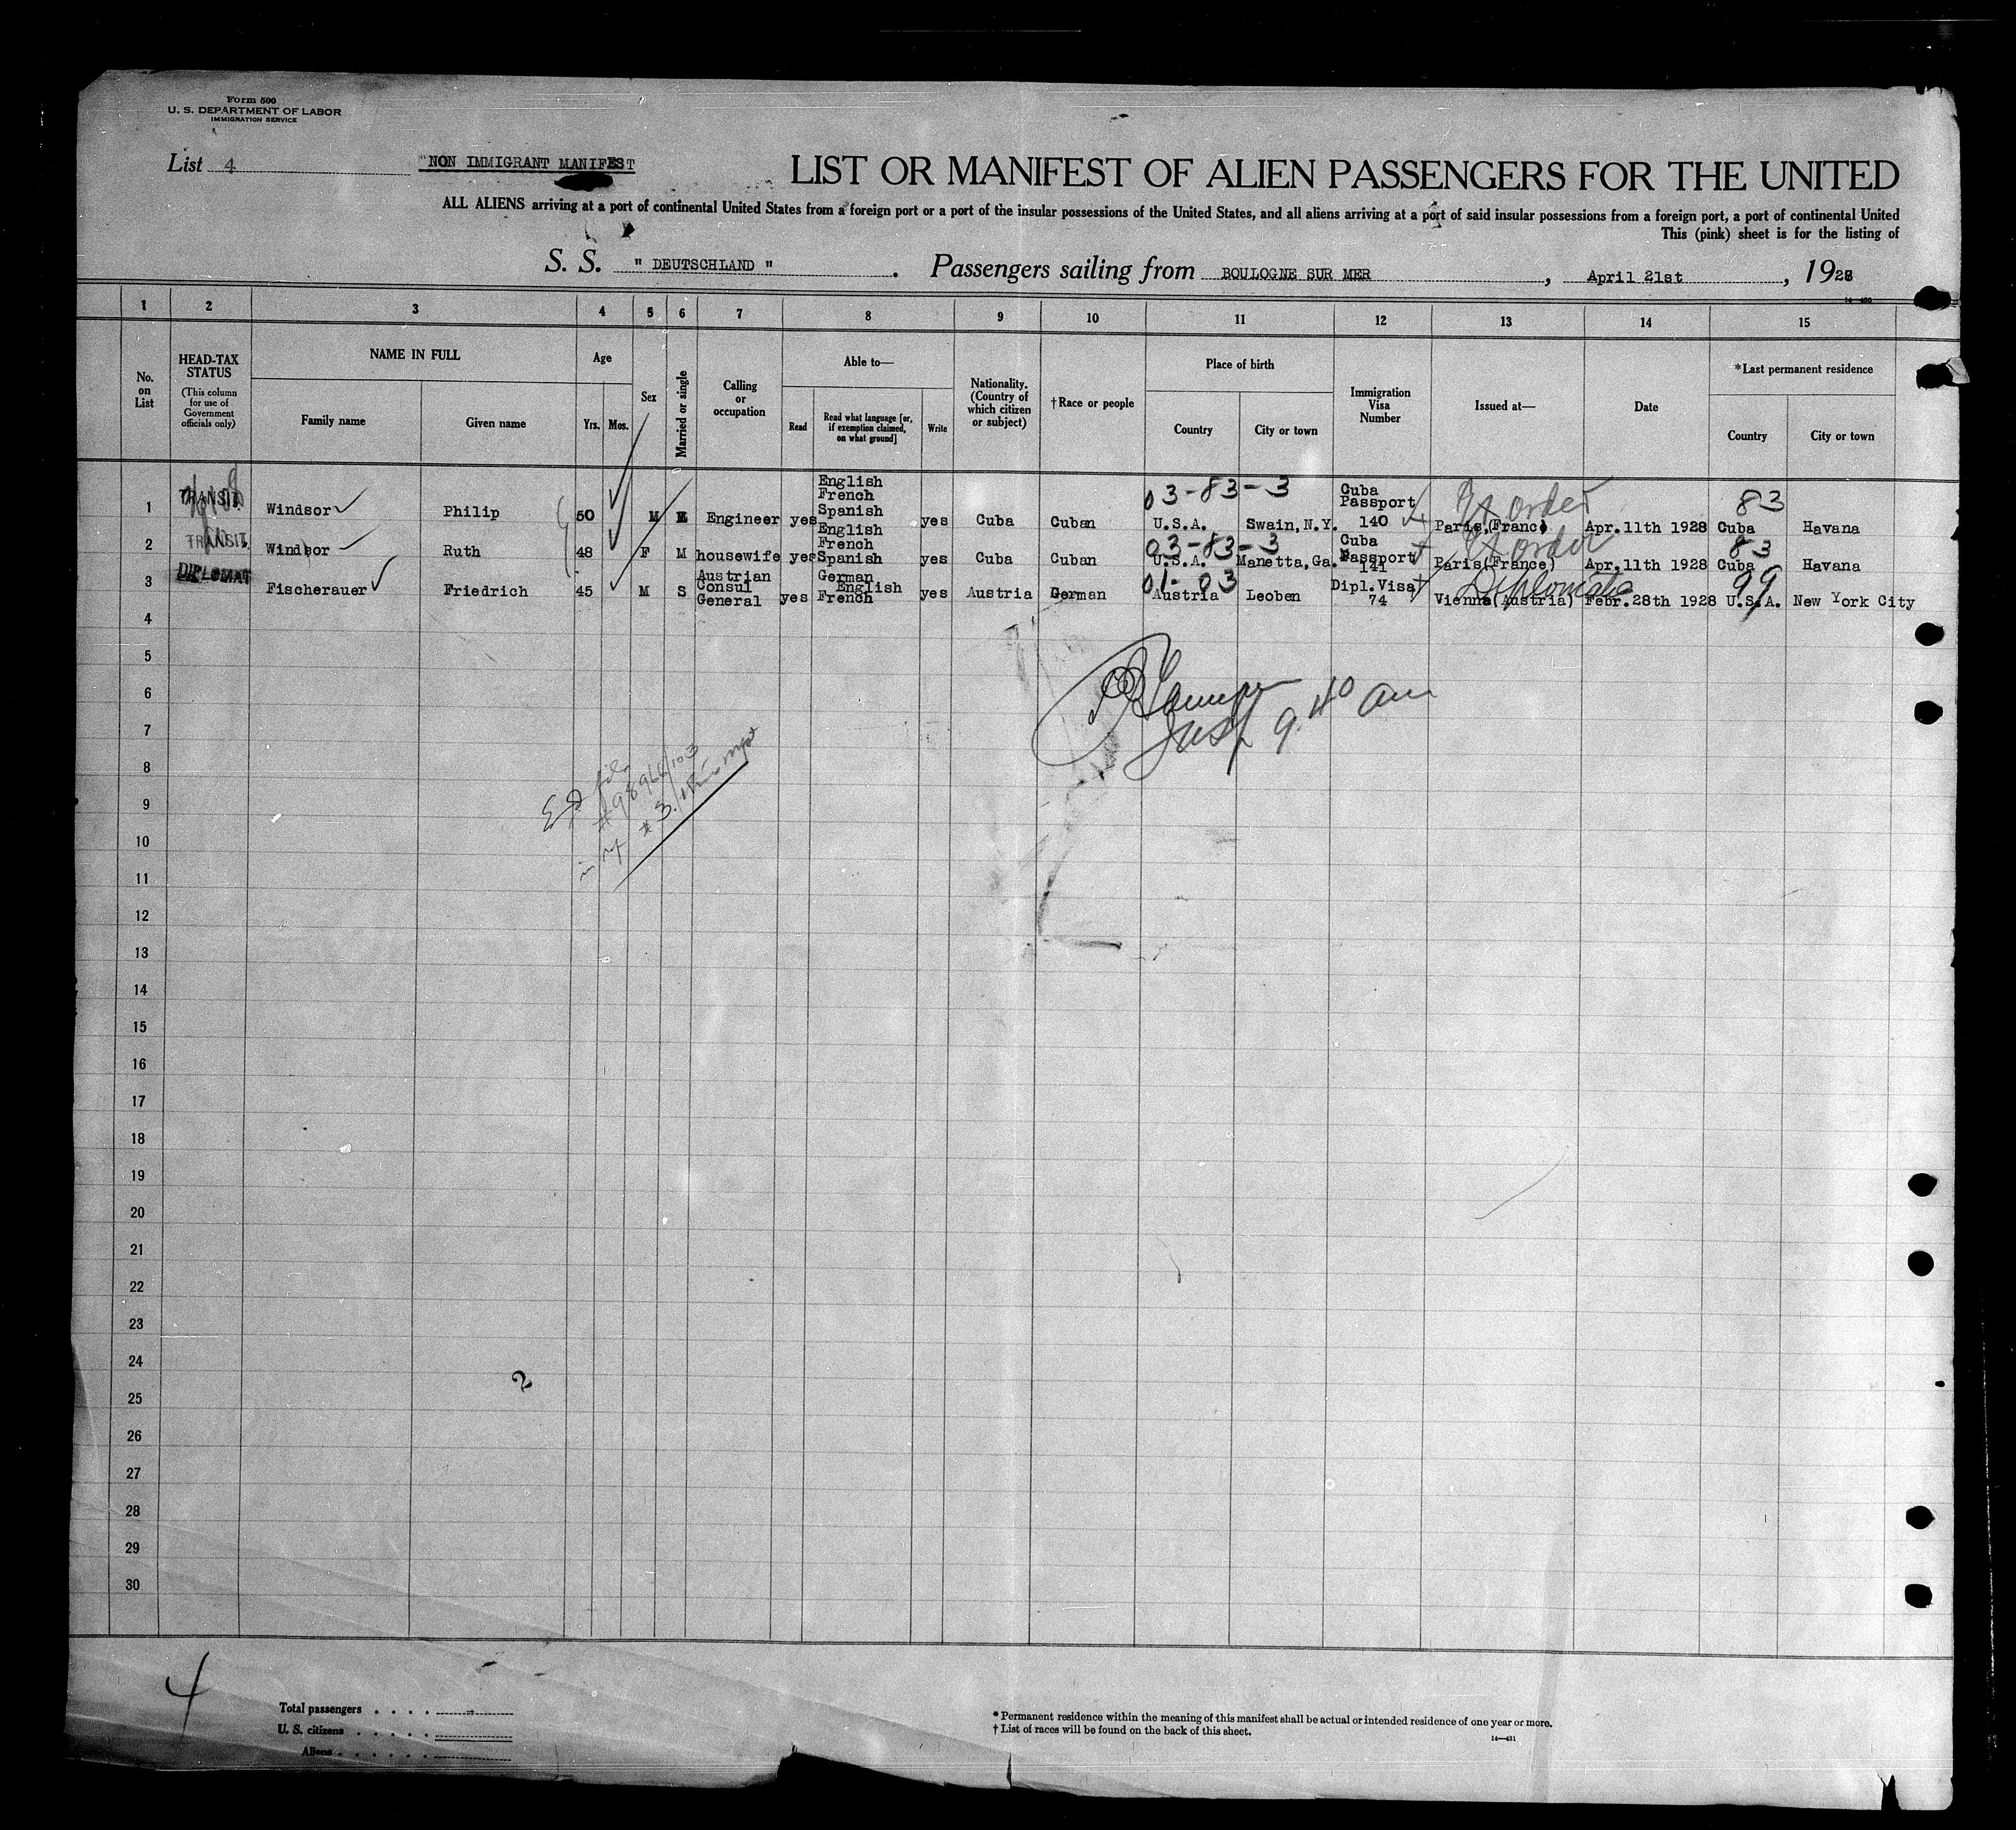 Form 500
U. S. DEPARTMENT OF LABOR
IMMIGRATION SERVICE
List 4
"NON IMMIGRANT MANIFEST
LIST OR MANIFEST OF ALIEN PASSENGERS FOR THE UNITED
ALL ALIENS arriving at a port of continental United States from a foreign port or a port of the insular possessions of the United States, and all aliens arriving at a port of said insular possessions from a foreign port, a port of continental United
This (pink) sheet is for the listing of
S. S. " DEUTSCHLAND " . Passengers sailing from BOULOGNE SUR MER , April 21st , 1928
14—430
1 2 3 4 5 6 7 8 9 10 11 12 13 14 15
No. on List
HEAD-TAX STATUS
(This column for use of Government officials only)
NAME IN FULL
Family name
Given name
Age
Yrs. Mos.
Sex
Married or single
Calling or occupation
Able to—
Read
Read what language [or, if exemption claimed, on what ground]
Write
Nationality. (Country of which citizen or subject)
†Race or people
Place of birth
Country
City or town
Immigration Visa Number
Issued at—
Date
*Last permanent residence
Country
City or town
03-83-3 83
1 TRANSIT. Windsor Philip 50 M M Engineer yes English French Spanish yes Cuba Cuban U.S.A. Swain, N.Y. Cuba Passport 140 Paris,(Franc) Apr.11th 1928 Cuba Havana
03-83-3 order 83
2 TRANSIT. Windsor Ruth 48 F M housewife yes English French Spanish yes Cuba Cuban U.S.A. Manetta,Ga. Cuba Passport 141 Paris(France) Apr.11th 1928 Cuba Havana
01-03 order 99
3 DIPLOMAT Fischerauer Friedrich 45 M S Austrian Consul General yes German English French yes Austria German Austria Leoben Dipl.Visa 74 Vienna(Austria) Febr.28th 1928 U.S.A. New York City
Diplomatic
4
5
6
7
Insp 9.40 am
8
9
10
11
12
13
14
15
16
17
18
19
20
21
22
23
24
2
25
26
27
28
29
30
4
Total passengers . . . .
U. S. citizens . . . . .
Aliens . . . . . .
* Permanent residence within the meaning of this manifest shall be actual or intended residence of one year or more.
† List of races will be found on the back of this sheet.
14—431